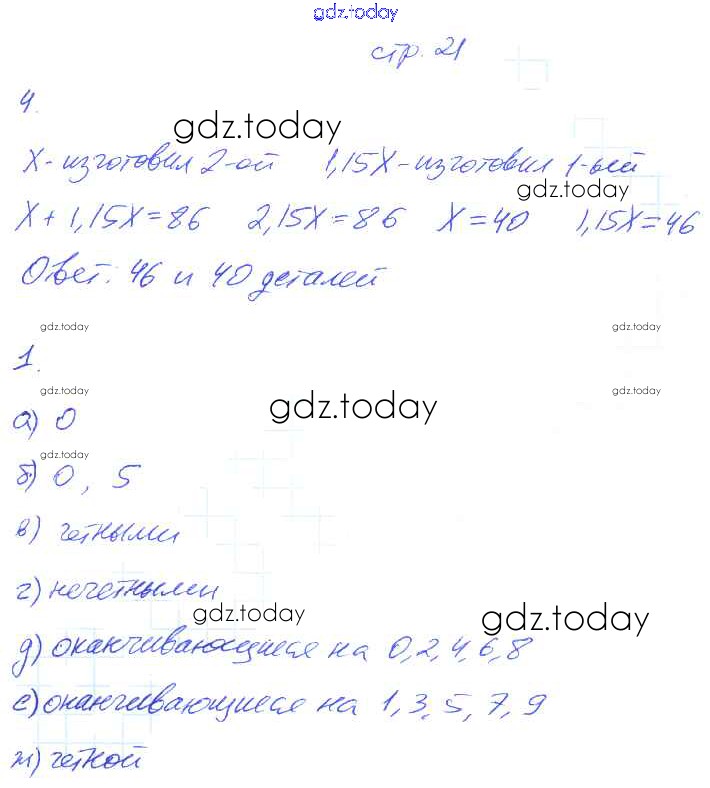 gdz.today
стр. 21
4.
gdz.today
X - изготовил 2-ой 1,15X - изготовил 1-ый
gdz.today
X + 1,15X = 86 2,15X = 86 X = 40 1,15X = 46
Ответ: 46 и 40 деталей
gdz.today gdz.today
1.
gdz.today gdz.today gdz.today
а) 0
gdz.today
б) 0, 5
в) четными
г) нечетными
gdz.today gdz.today
д) оканчивающиеся на 0, 2, 4, 6, 8
е) оканчивающиеся на 1, 3, 5, 7, 9
ж) четной